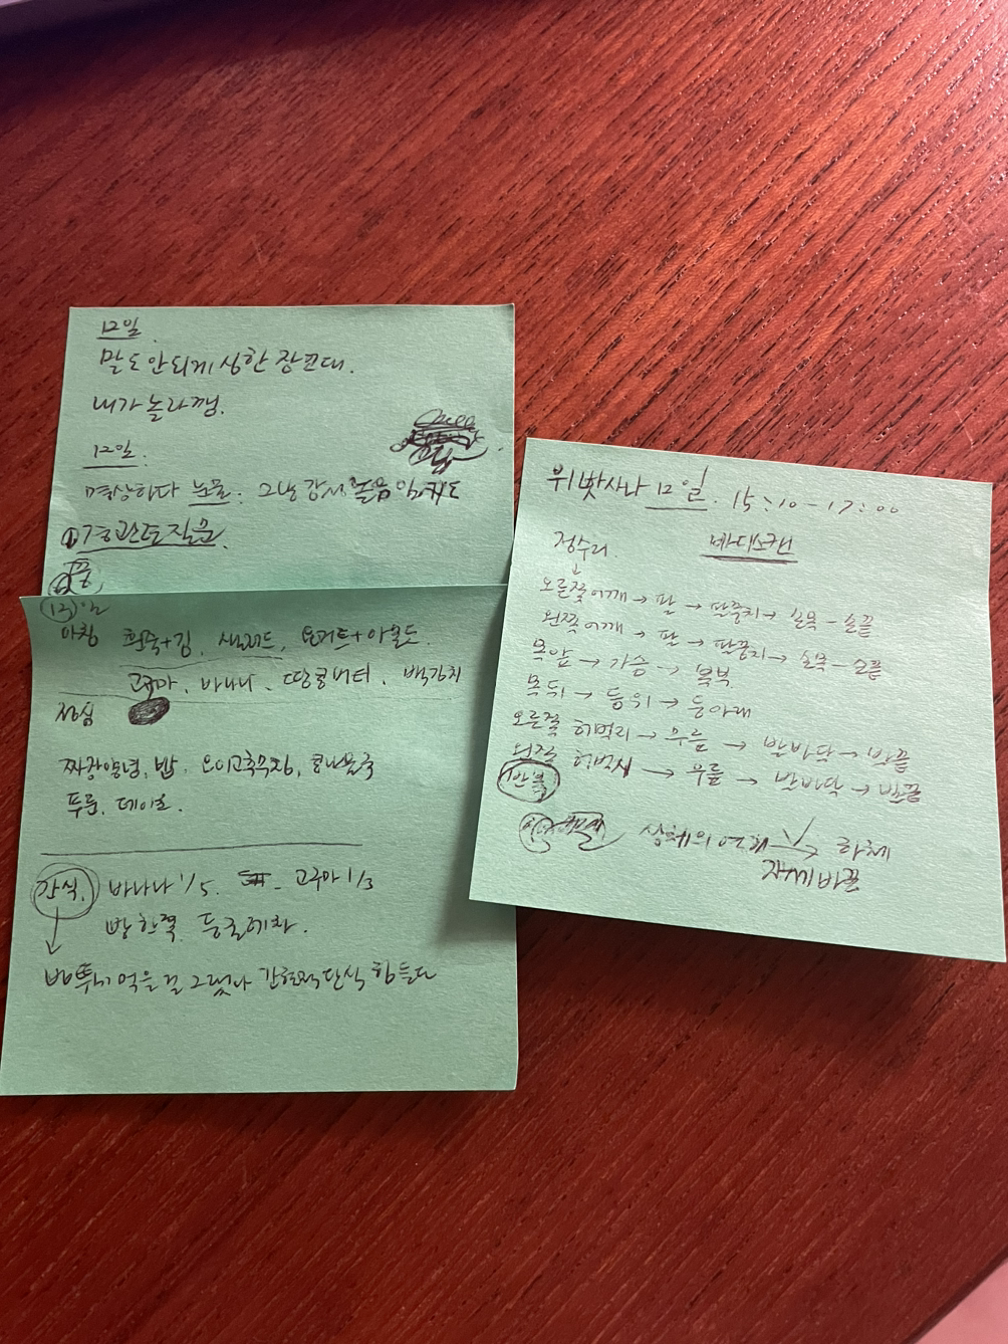 12일
말도 안되게 심한 잠꼬대.
내가 놀라깸.
12일.
명상하다 눈물. 그냥 감사
① 경관토질문
13일
아침 흰죽+김, 샐러드, 요거트+아몬드
고구마, 바나나, 땅콩버터, 백김치
점심
짜장양념, 밥, 오이고추무침, 콩나물국
푸룬, 데이츠.
간식. 바나나 1/5. 고구마 1/3
빵 한쪽. 둥글레차.
먹을걸 그랬나 간헐적단식 힘들다
위빳사나 12일. 15:10-17:00
정수리 바디스캔
↓
오른쪽어깨 → 팔 → 팔꿈치 → 손목 - 손끝
왼쪽어깨 → 팔 → 팔꿈치 → 손목 - 손끝
목앞 → 가슴 → 복부
목뒤 → 등위 → 등아래
오른쪽 허벅지 → 무릎 → 발바닥 → 발끝
왼쪽 허벅지 → 무릎 → 발바닥 → 발끝
반복
상체의 하체
자세바꿈